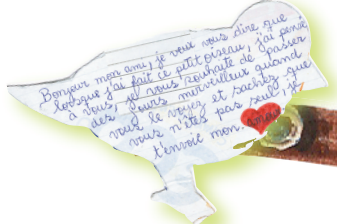 Bonjour mon ami, je veux vous dire que
lorsque j'ai fait ce petit oiseau, j'ai pensé
à vous, je vous souhaite de passer
des jours merveilleux quand
vous le voyez et sachez que
vous n'êtes pas seul, je
t'envoie mon